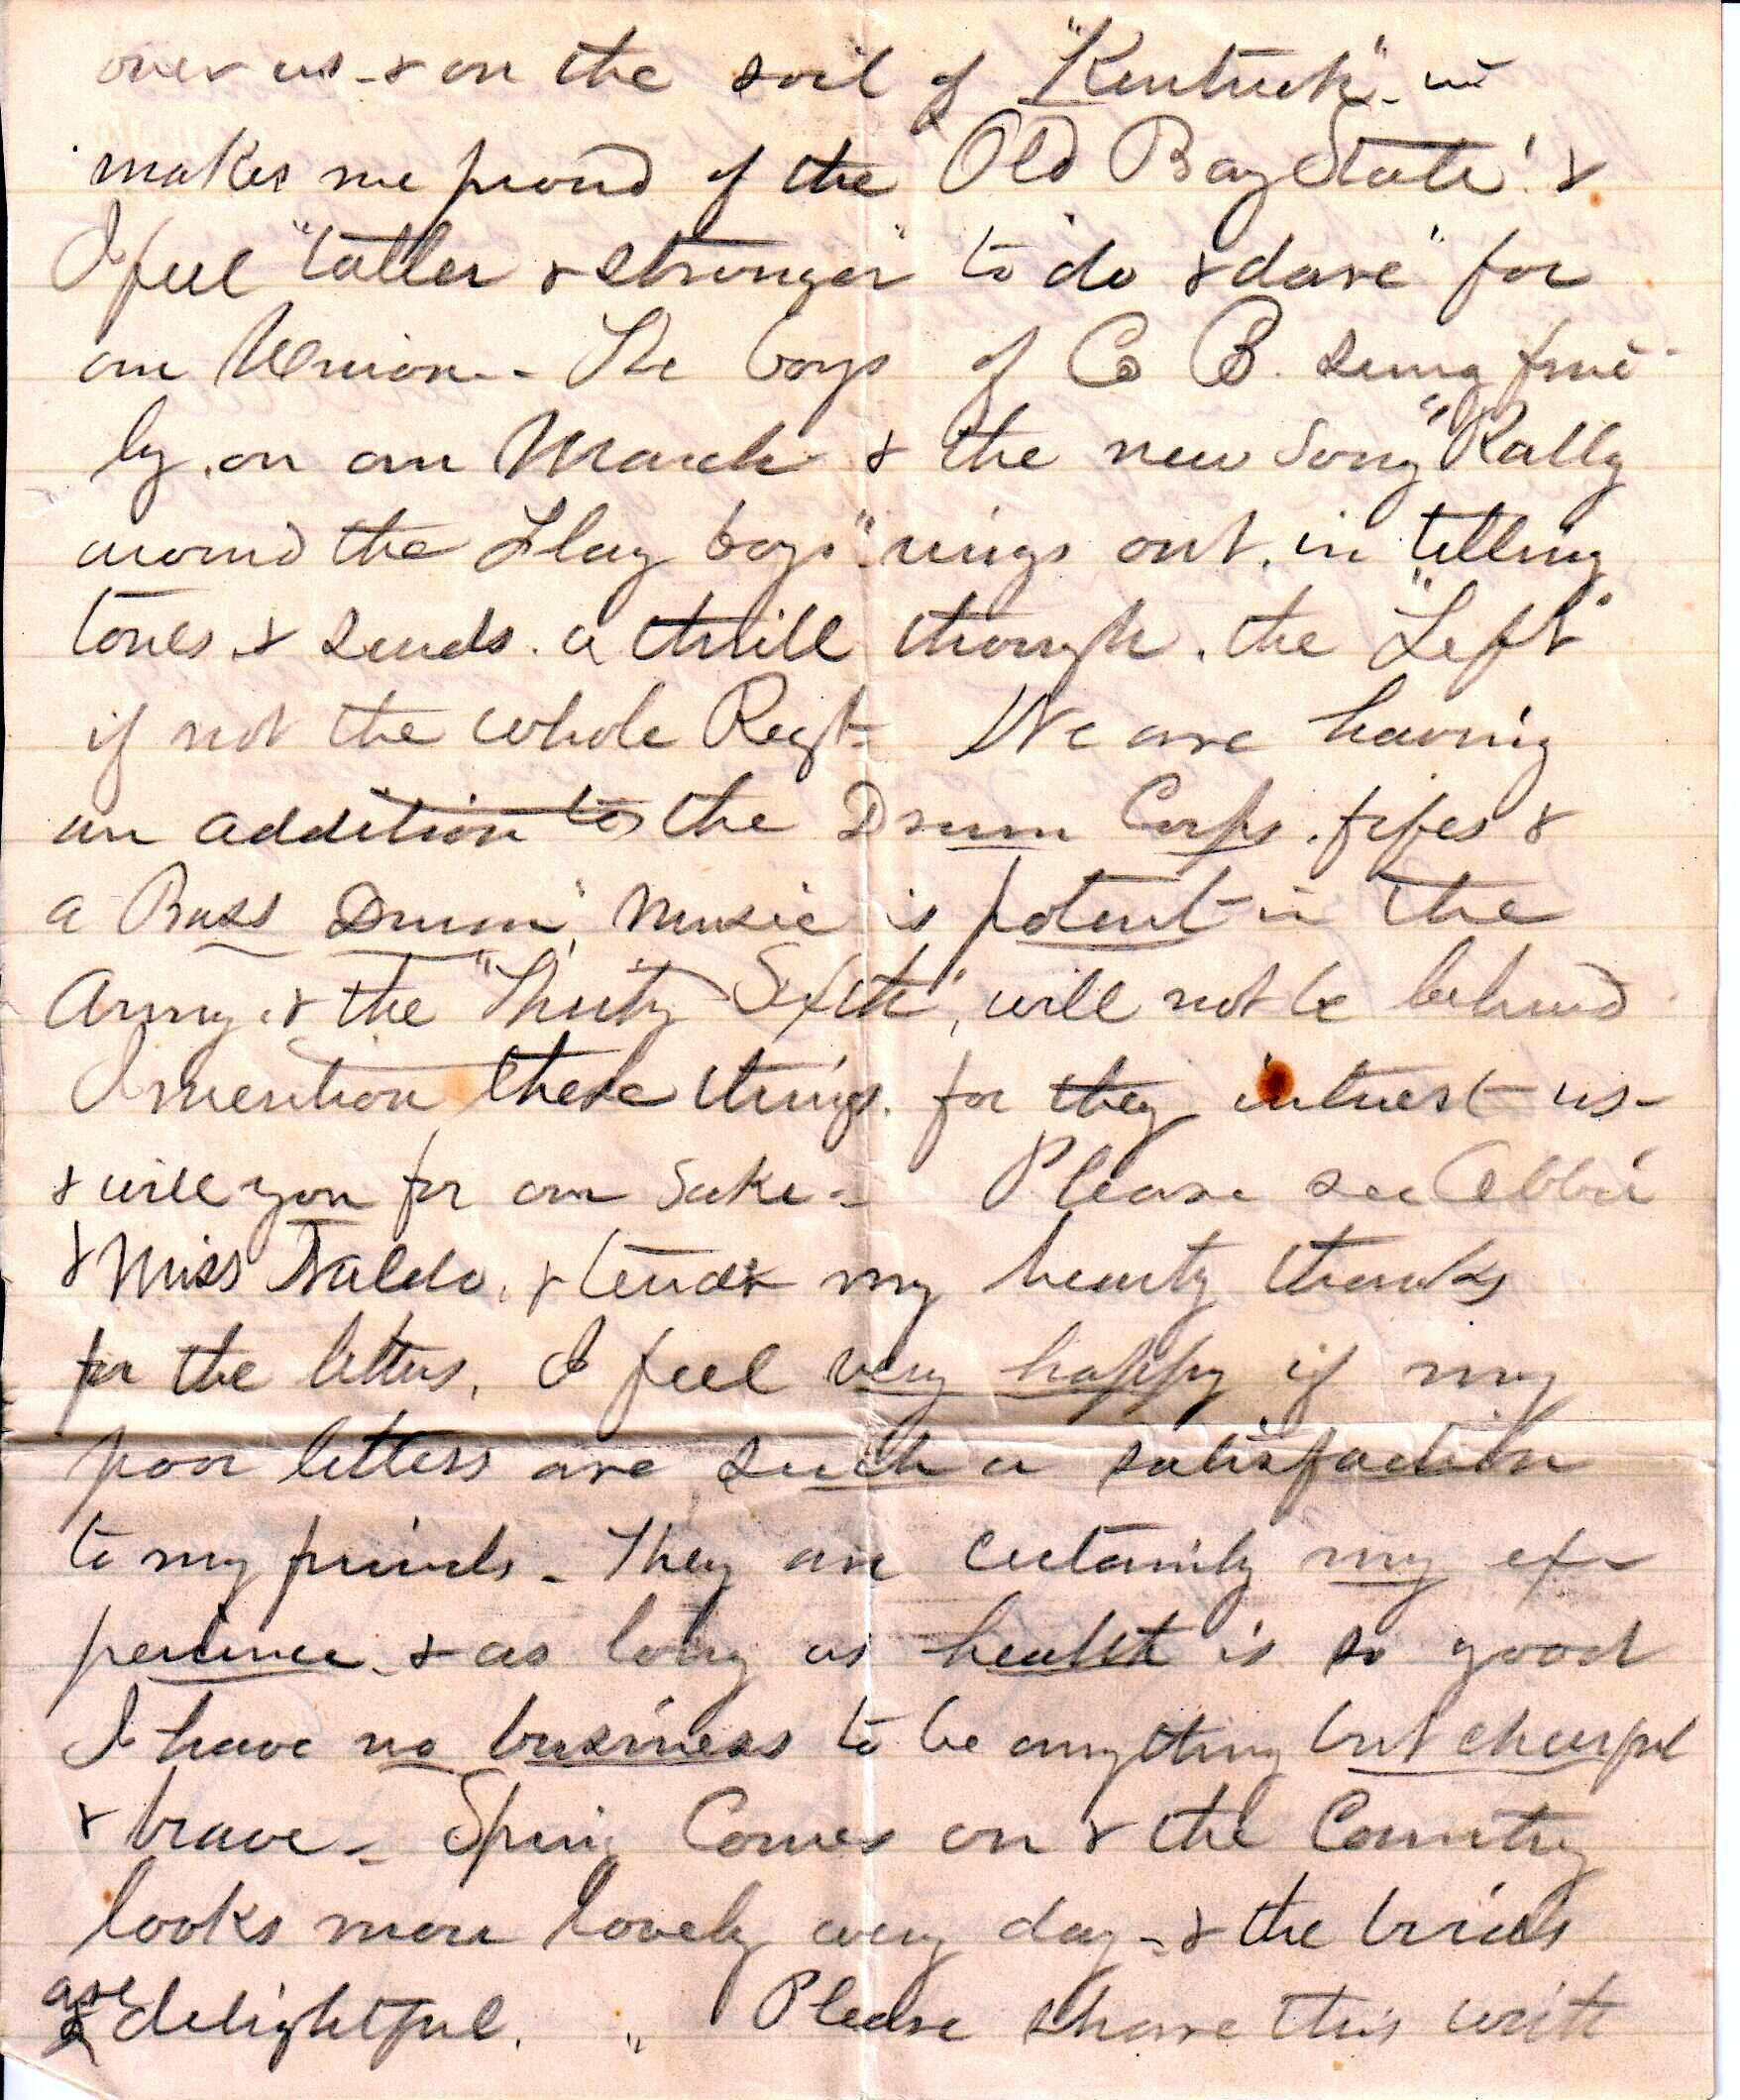 over us - & on the soil of "Kentuck" - it
makes me proud of the "Old Bay State"! &
I feel "taller & stronger" to "do & dare" for
our Union - The boys of Co B. sung fine
ly. on our March & the new Song "Rally
around the Flag boys" rings out. in telling
tones & sends. a thrill through. the "Left"
if not the whole Regt - We are having
an addition to the Drum Corps. fifes &
a Bass Drum, Music is potent in the
Army. & the "Thirty Sixth", will not be behind
I mention these things. for they interest us -
& will you for our sake - Please see Abbie
& Miss Waldo. & tender my hearty thanks
for the letters, I feel very happy if my
poor letters are such a satisfaction
to my friends - They are certainly my ex-
perience - & as long as health is so good
I have no business to be anything but cheerful
& brave - Spring Comes on & the Country
looks more lovely every day - & the birds
are delightful. Please share this with